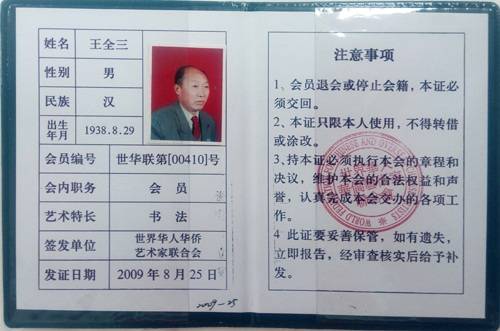 姓名 王全三
性别 男
民族 汉
出生年月 1938.8.29
会员编号 世华联第[00410]号
会内职务 会员
艺术特长 书法
签发单位 世界华人华侨
艺术家联合会
发证日期 2009年8月25日
注意事项
1、会员退会或停止会籍，本证必
须交回。
2、本证只限本人使用，不得转借
或涂改。
3、持本证必须执行本会的章程和
决议，维护本会的合法权益和声
誉，认真完成本会交办的各项工
作。
4、此证要妥善保管，如有遗失，
立即报告，经审查核实后给予补
发。